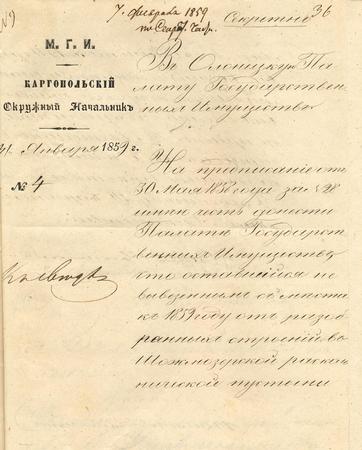 7 февраля 1859
Секретно 36
М. Г. И.
КАРГОПОЛЬСКІЙ
Окружный Начальникъ
31 Января 1859 г.
№ 4
Въ Олонецкую Па-
лату Государствен-
ныхъ Имуществъ
На предписаніе отъ
30 Мая 1858 года за № 28
имѣю честь донести
Палатѣ Государст-
венныхъ Имуществъ
что оставшійся не
вывезеннымъ
къ 1859 году отъ разоб-
ранныхъ строеній въ
раскол-
нической пустыни